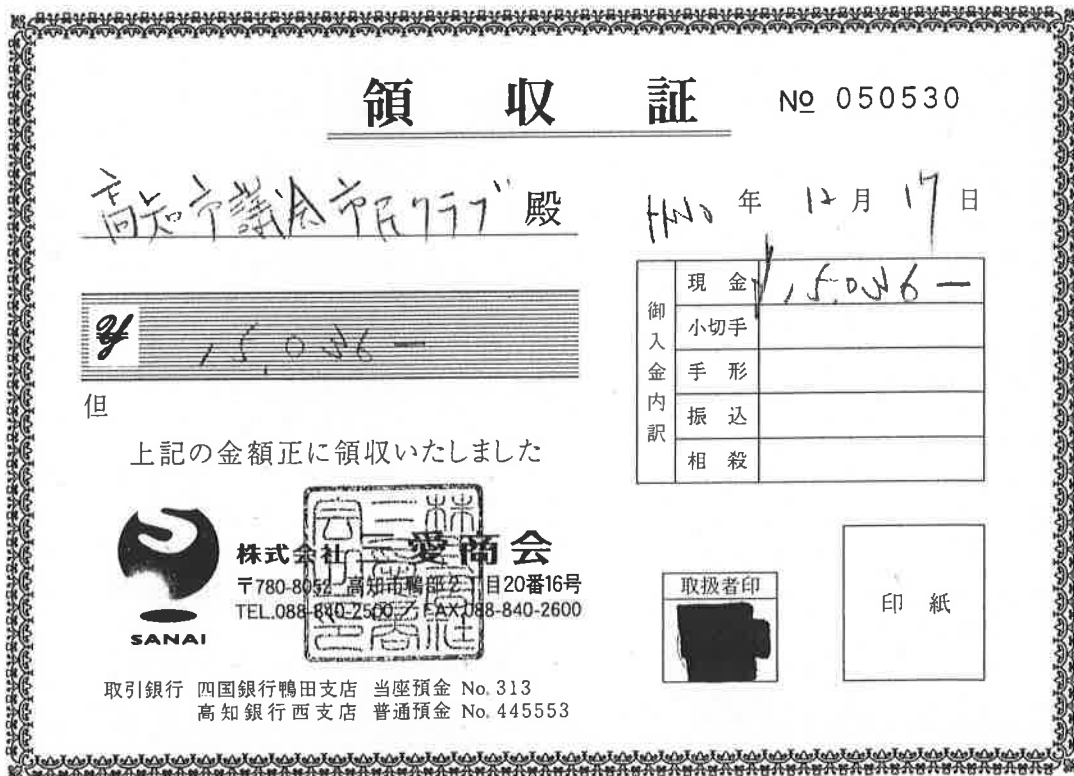 領収証
№ 050530
高知市議会市民クラブ 殿
H30年 12月 17日
¥ 15,036—
但
上記の金額正に領収いたしました
御入金内訳
現金 ¥15,036—
小切手
手形
振込
相殺
SANAI
株式会社三愛商会
〒780-8052 高知市鴨部2丁目20番16号
TEL.088-840-2500／FAX.088-840-2600
取扱者印
印紙
取引銀行 四国銀行鴨田支店 当座預金 No.313
高知銀行西支店 普通預金 No.445553